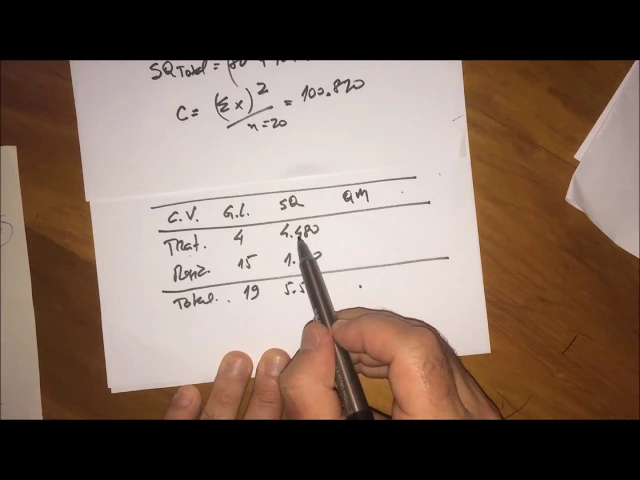 SQ Total = (80
C = (Σx)² / n=20 = 100.820
C.V. G.L. SQ QM
Trat. 4 4.480
15 1.
Total. 19 5.5